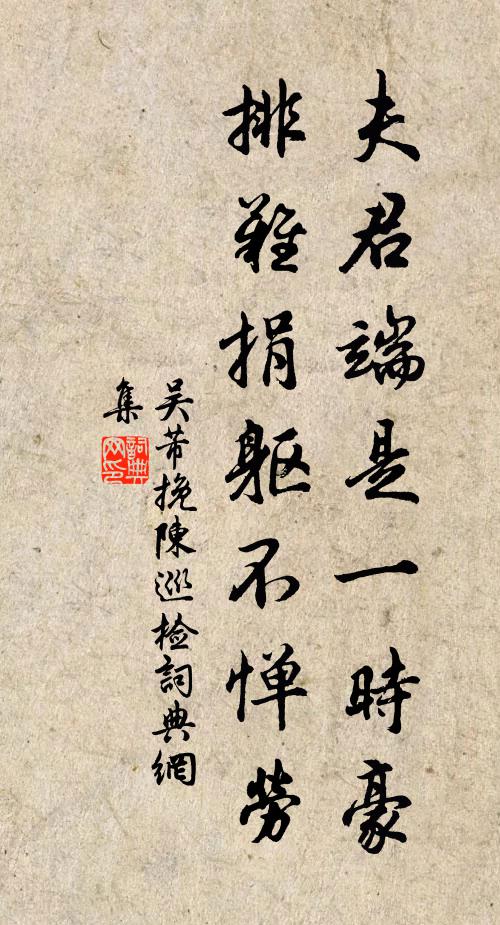 夫君端是一時豪
排難捐軀不惮勞
吴芾挽陳巡檢詞典網
集
詞典
网印